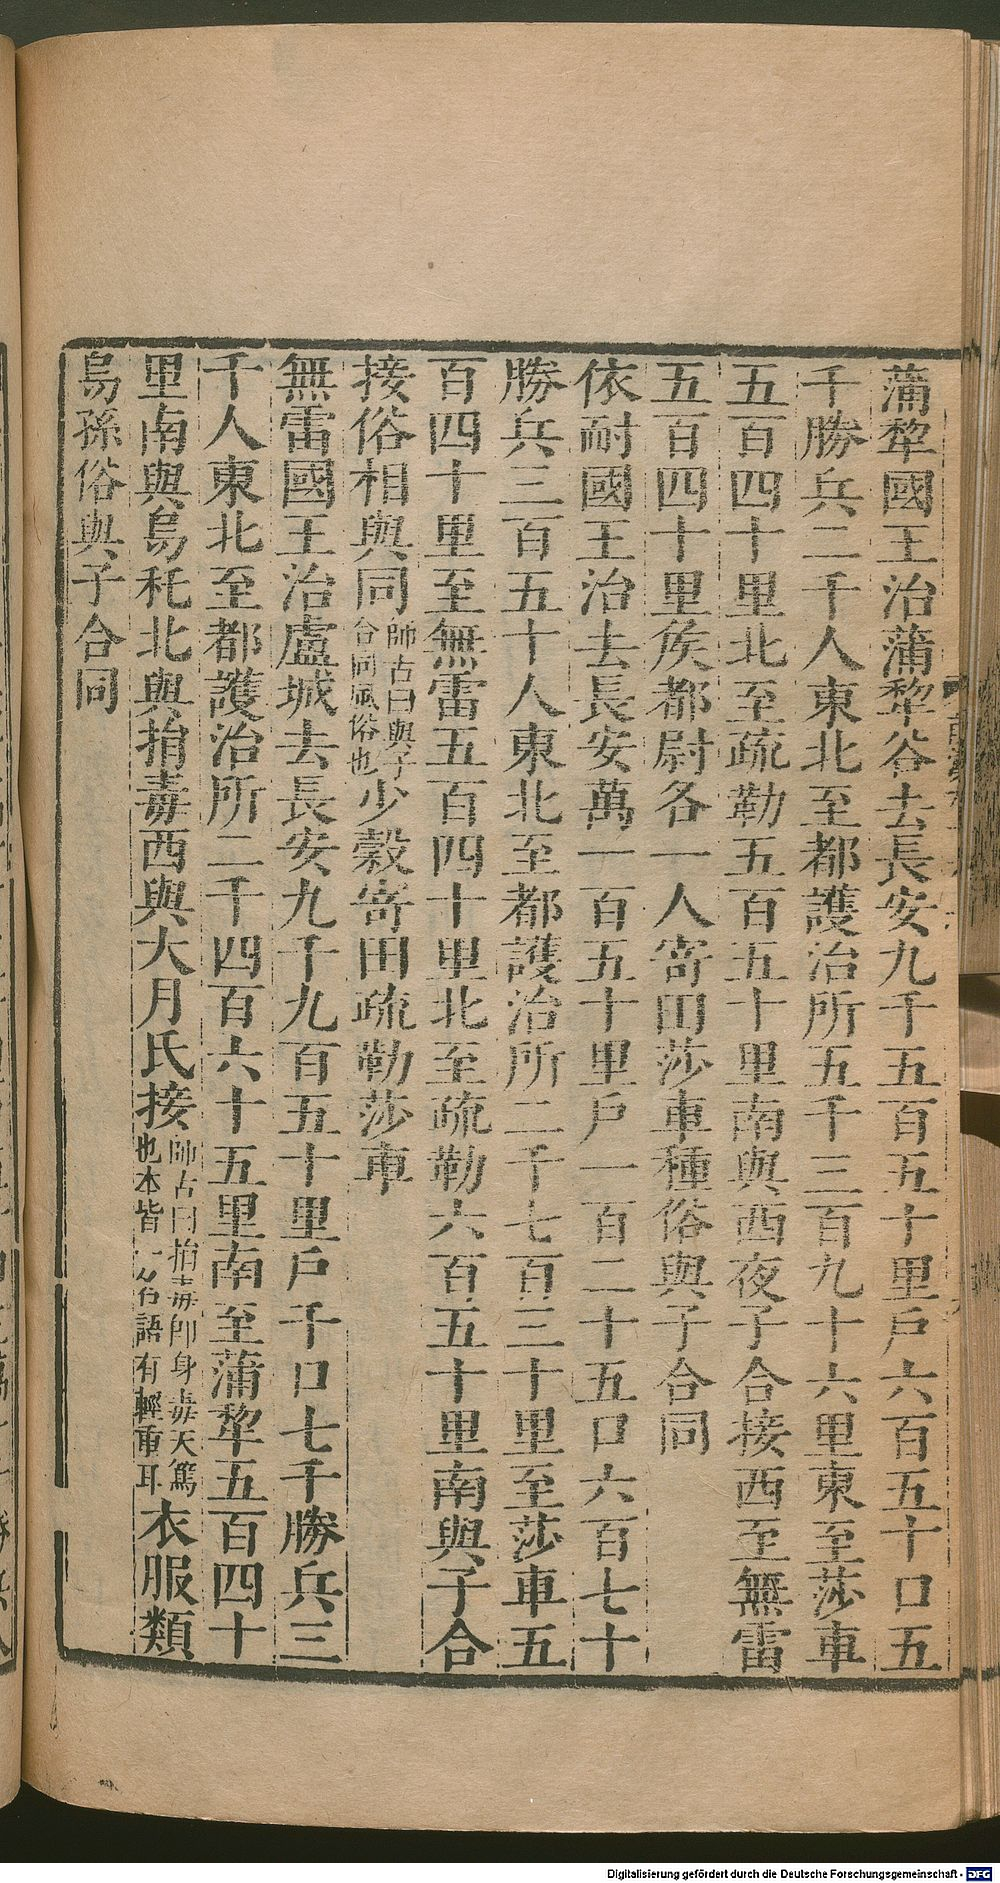 蒲犂國王治蒲犂谷去長安九千五百五十里戶六百五十口五
千勝兵二千人東北至都護治所五千三百九十六里東至莎車
五百四十里北至疏勒五百五十里南與西夜子合接西至無雷
五百四十里矦都尉各一人寄田莎車種俗與子合同
依耐國王治去長安萬一百五十里戶一百二十五口六百七十
勝兵三百五十人東北至都護治所二千七百三十里至莎車五
百四十里至無雷五百四十里北至疏勒六百五十里南與子合
接俗相與同師古曰與子合同風俗也少穀寄田疏勒莎車
無雷國王治盧城去長安九千九百五十里戶千口七千勝兵三
千人東北至都護治所二千四百六十五里南至蒲犂五百四十
里南與烏秅北與捐毒西與大月氏接師古曰捐毒卽身毒天篤也本皆一名語有輕重耳衣服類
烏孫俗與子合同
Digitalisierung gefördert durch die Deutsche Forschungsgemeinschaft - DFG